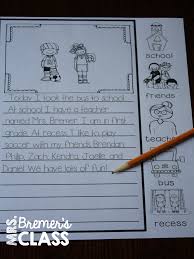 Today I took the bus to school.
At school I have a teacher
named Mrs. Bremer. I am in first
grade. At recess I like to play
soccer with my friends Brendan,
Philip, Zach, Kendra, Joelle, and
Daniel. We have lots of fun!
school
friends
teacher
bus
recess
MRS. Bremer's
CLASS